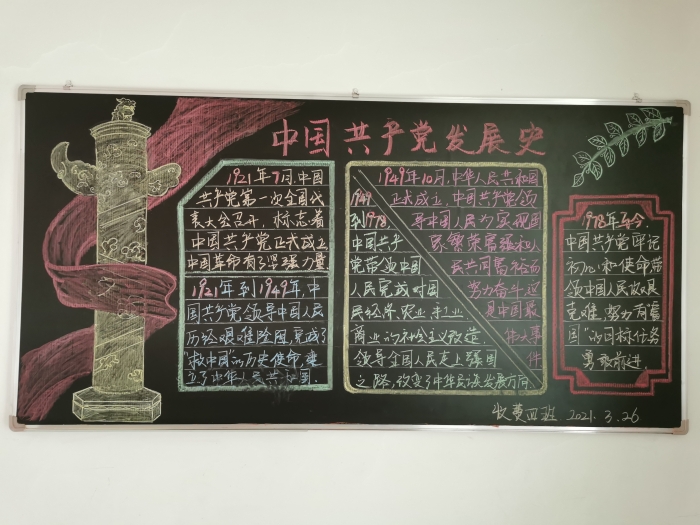 中国共产党发展史
1921年7月,中国
共产党第一次全国代
表大会召开,标志着
中国共产党正式成立
中国革命有了坚强力量
1921年到1949年,中
国共产党领导中国人民
历经艰难险阻,完成了
"救中国"的历史使命,建
立了中华人民共和国.
1949年10月,中华人民共和国
正式成立,中国共产党领
导中国人民为实现国
家繁荣富强和人
民共同富裕而
努力奋斗这
是中国最
伟大事
件
1949
到1978,
中国共产
党带领中国
人民完成对国
民经济农业,手工业
商业的社会主义改造.
领导全国人民走上强国
之路,改变了中华民族发展方向
1978年至今,
中国共产党牢记
初心和使命带
领中国人民攻艰
克难,努力有富
国"的目标任务
勇毅前进.
四班 2021.3.26